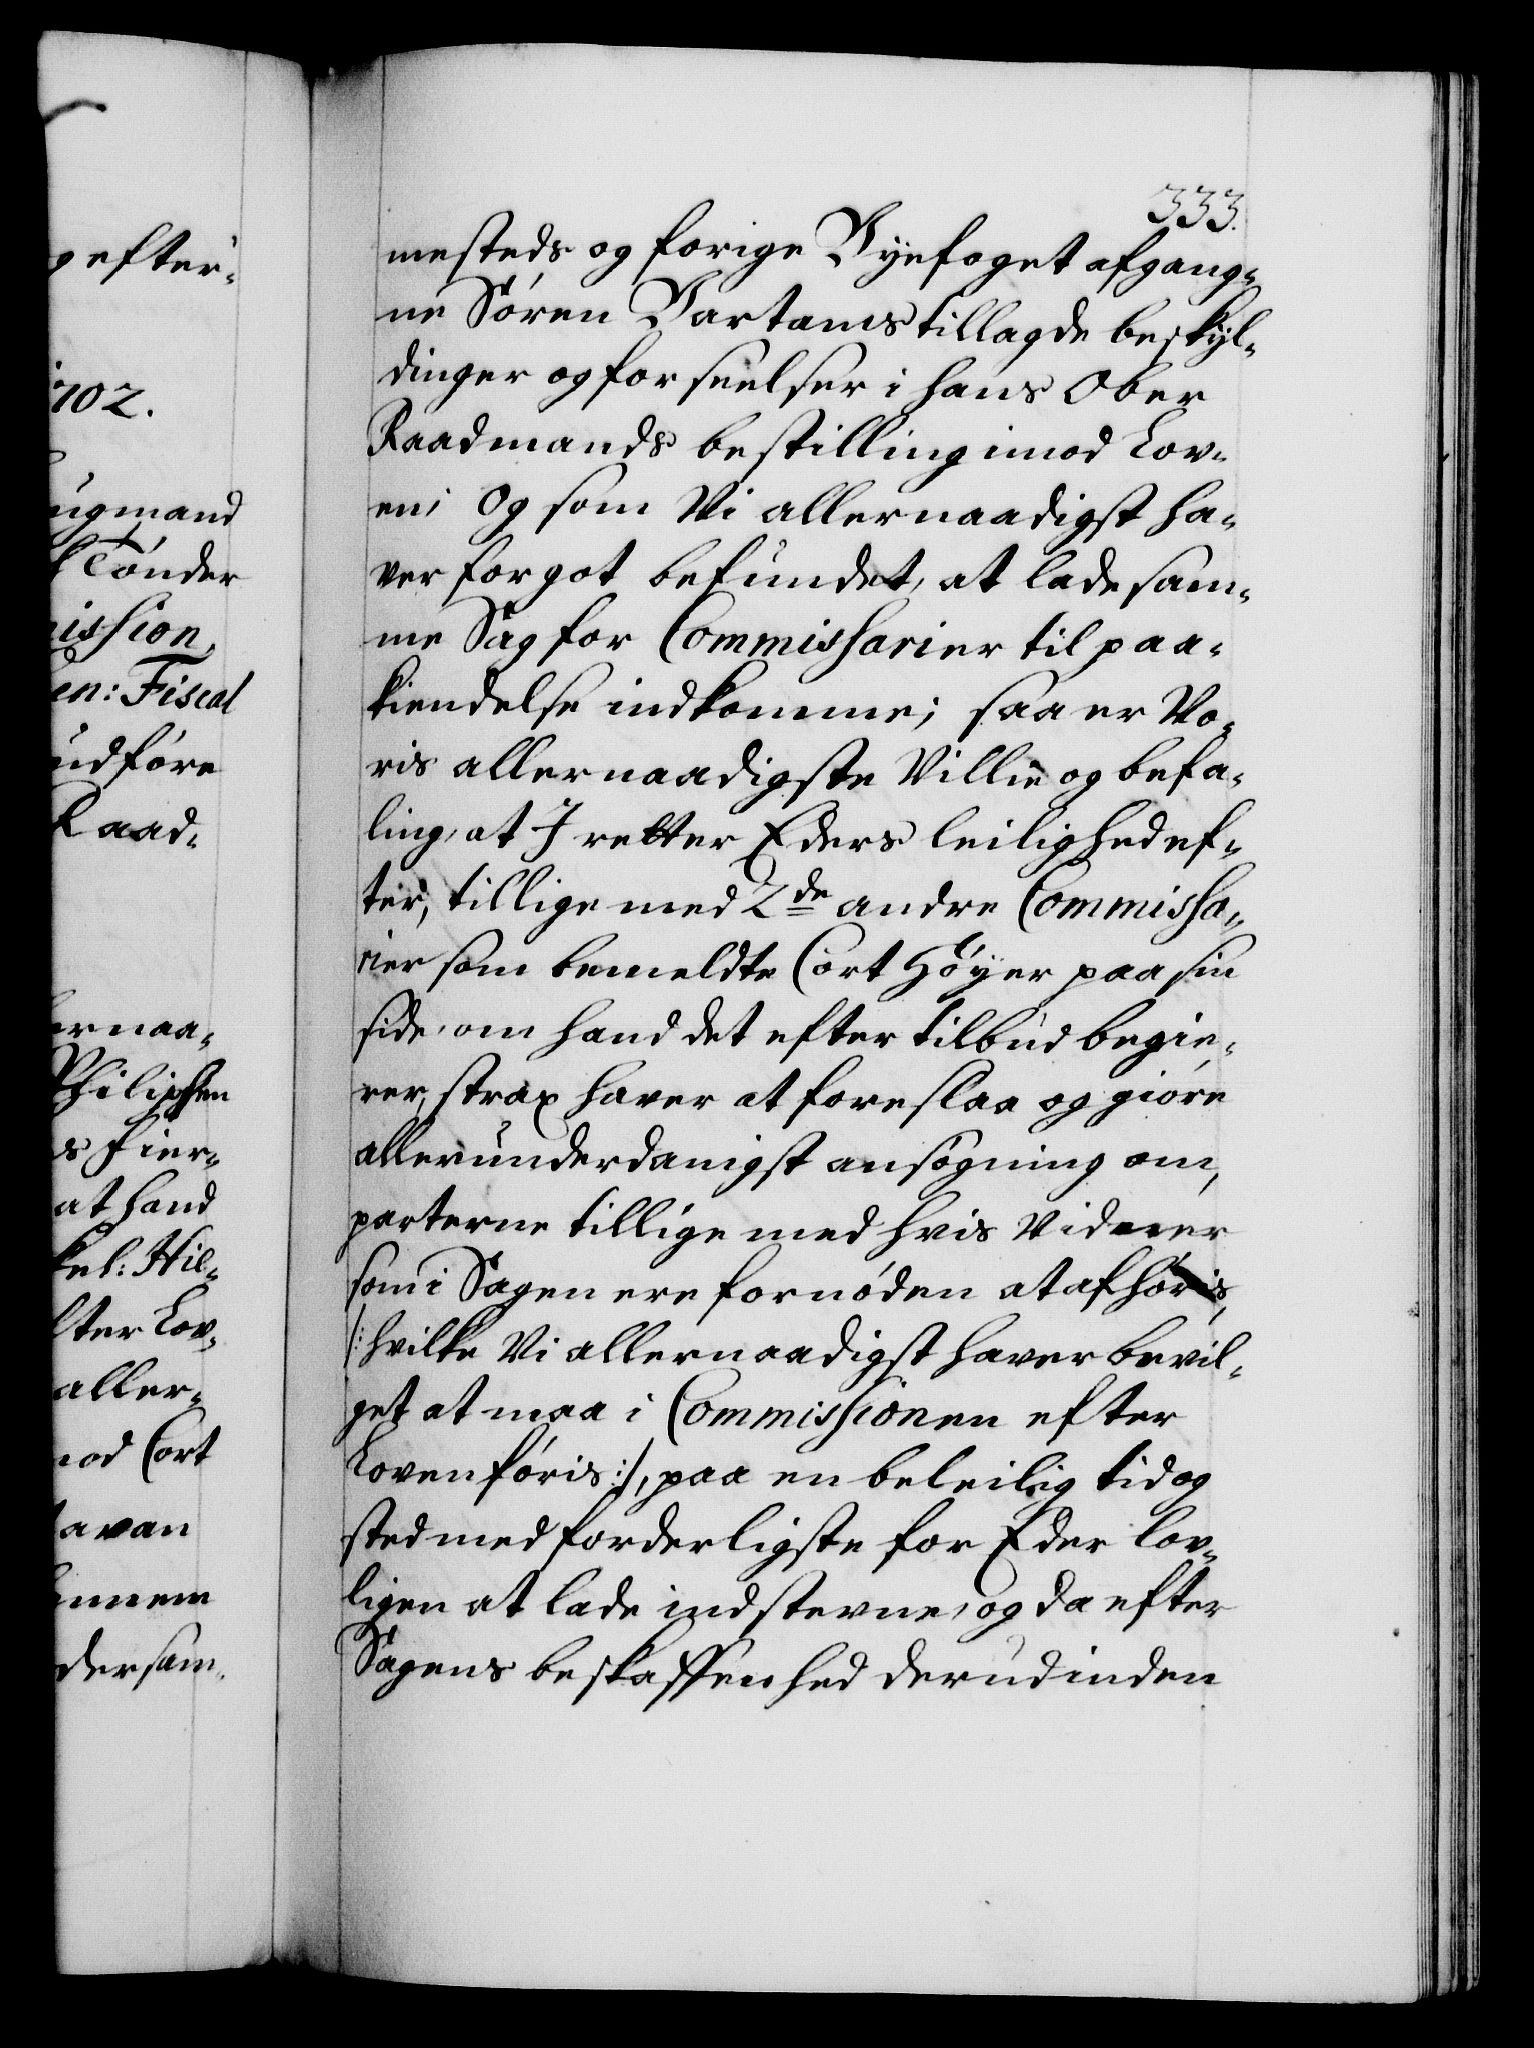 333.
mesteds og forige Byefoget afgang-
ne Sören Bartams tillagde beskyl-
dinger og forseelser i hans Ober
Raadmands bestilling imod Lov-
en; Og som Vi allernaadigst ha-
ver for got befundet, at lade sam-
me Sag for Commissarier til paa-
kiendelse indkomme; saa er Vo-
ris allernaadigste Villie og befa-
ling, at I retter Eders leilighed ef-
ter, tillige med 2de andre Commissa-
rier som bemeldte Cort Höyer paa sin
side, om hand det efter tilbud begie-
rer, strax haver at foreslaa og giöre
allerunderdanigst ansögning om,
parterne tillige med hvis Vidner
som i Sagen ere fornöden at afhöris,
/: hvilke Vi allernaadigst haver bevil-
get at maa i Commissionen efter
Loven föris :/, paa en beleilig tid og
sted med forderligste for Eder lov-
ligen at lade indstevne, og da efter
Sagens beskaffenhed derudinden
efter-
1702.
ugmand
Tönder
ission
en: Fiscal
udföre
Raad-
ernaa-
Philipsen
s fier-
at hand
kel: Hil-
lter Lov-
aller-
od Cort
avan
innem
dersam-